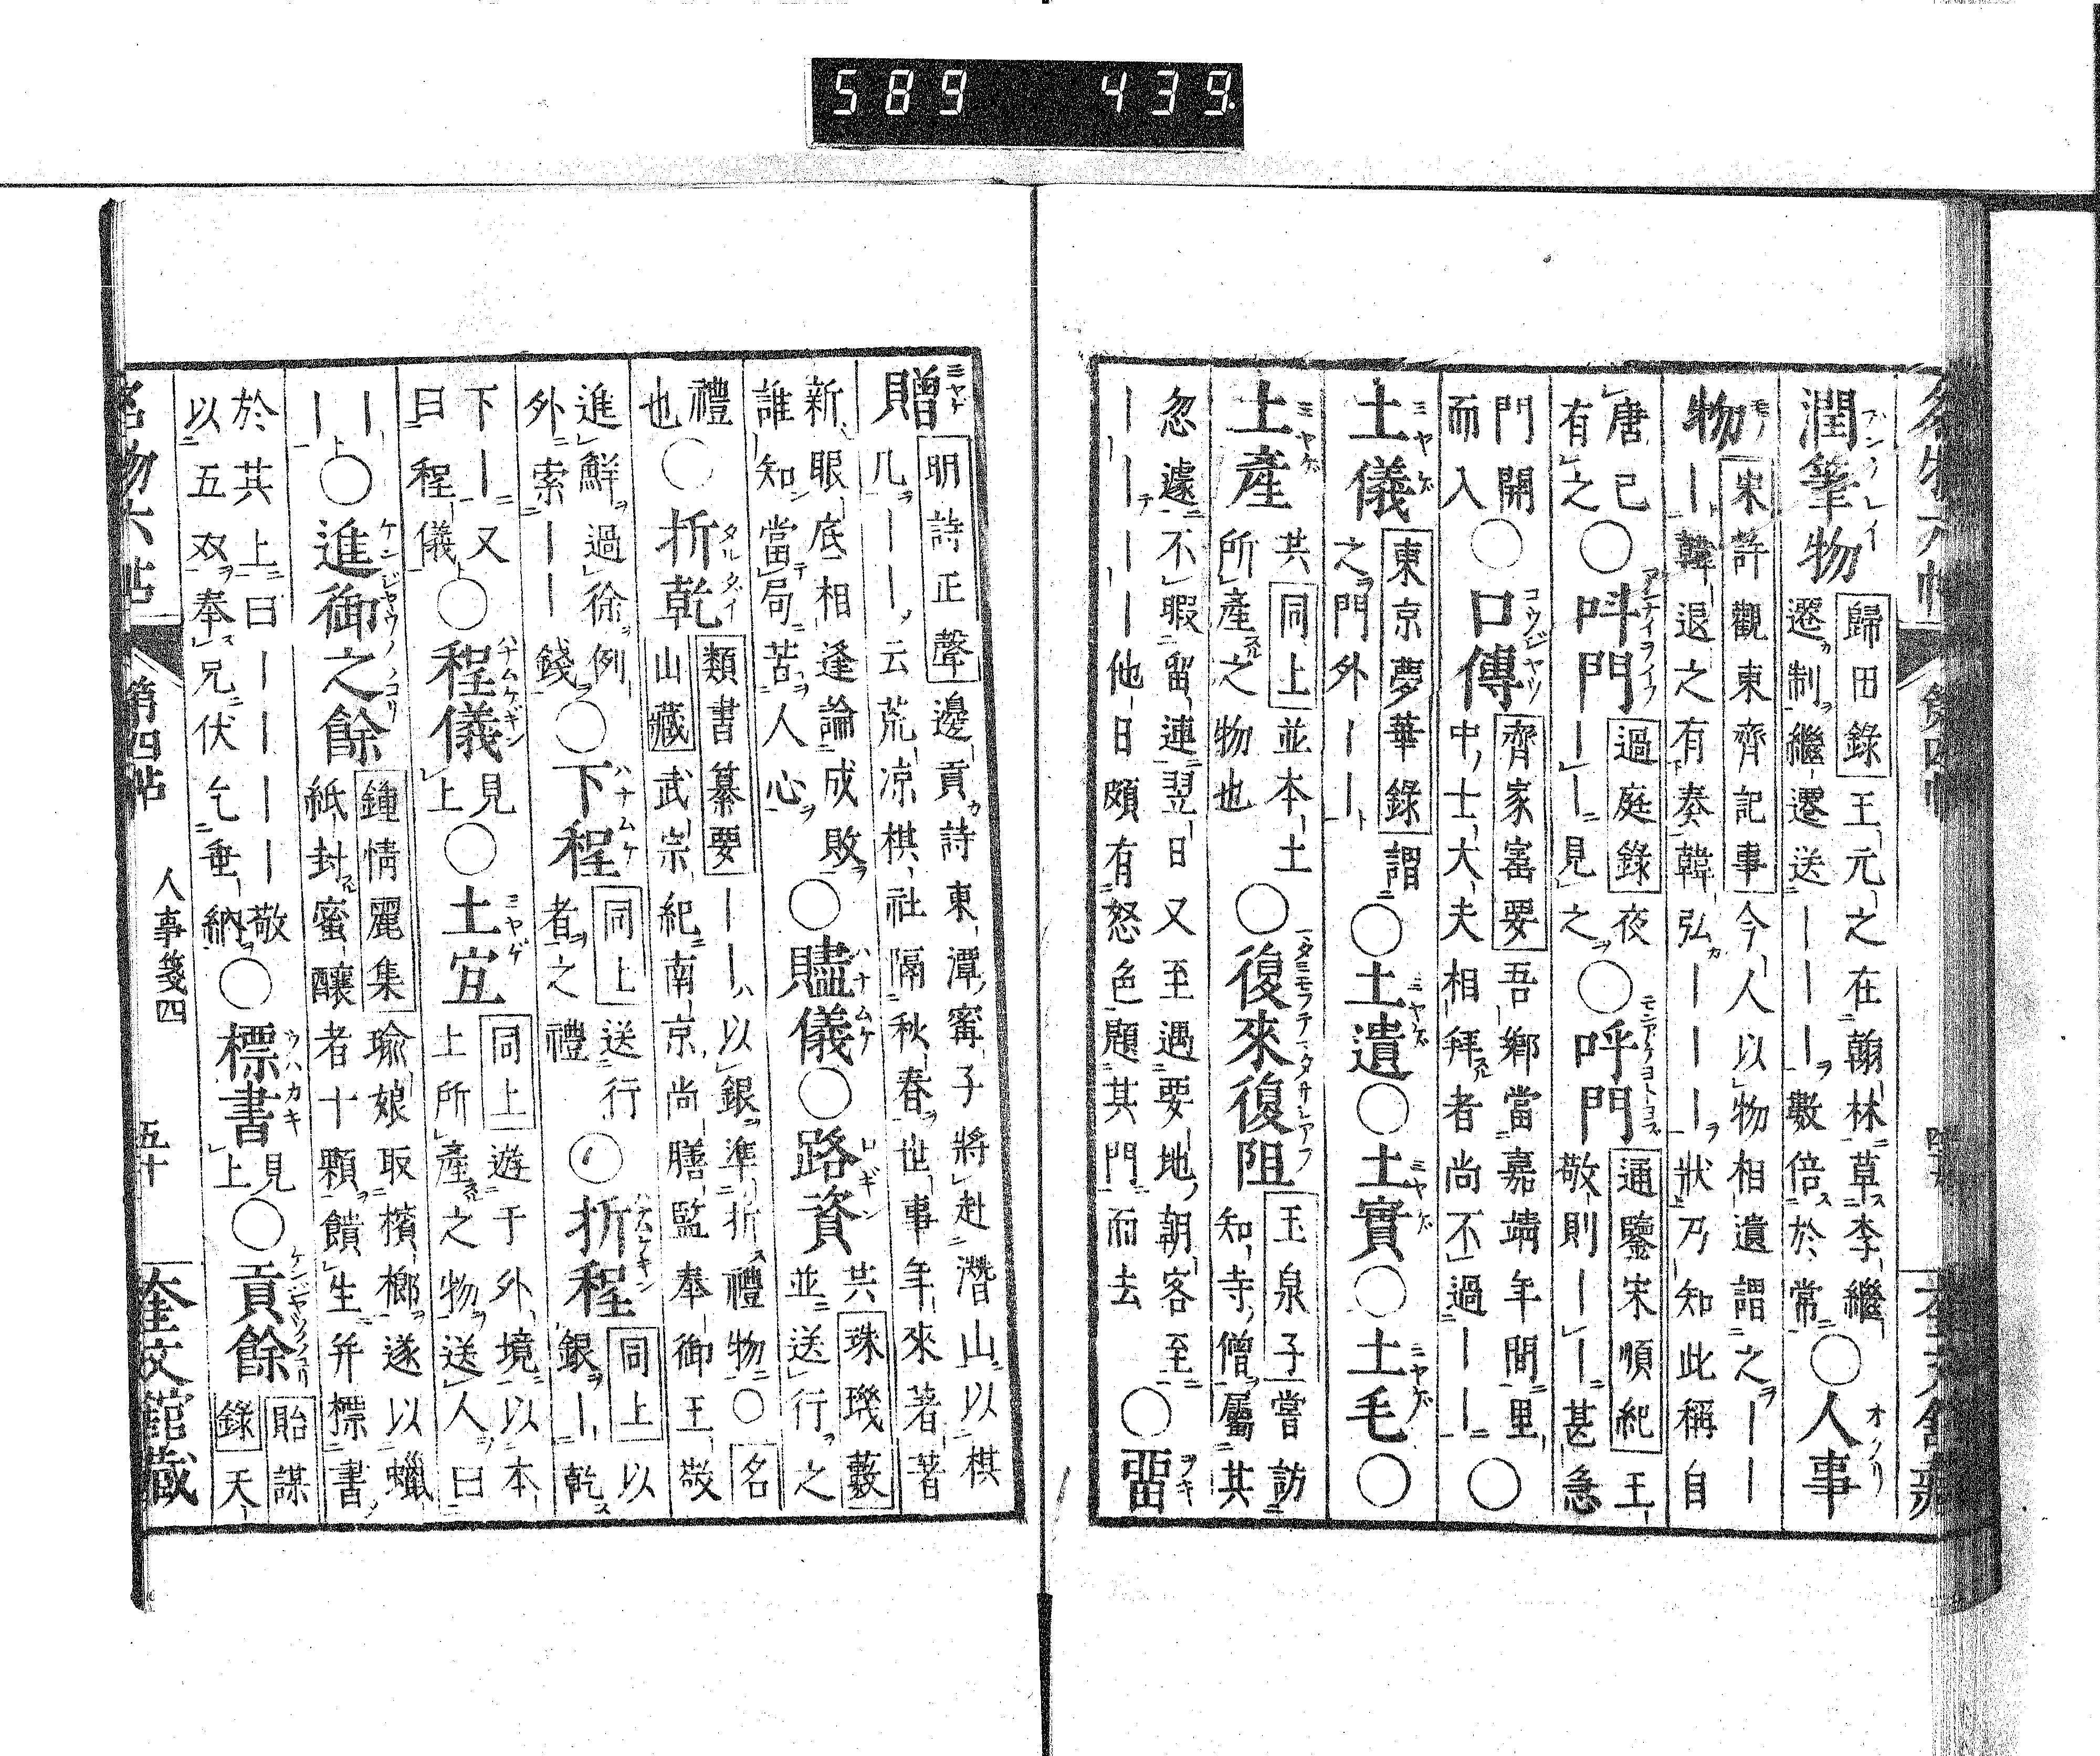 589 439
潤筆物 歸田錄 王元之在翰林草李繼
遷制繼遷送｜｜｜數倍於常 ○人事
物 宋許觀東齊記事 今人以物相遺謂之｜｜
｜韓退之有奏韓弘｜｜｜狀乃知此稱自
唐已
有之 ○呌門 過庭錄 夜
｜｜見之 ○呼門 通鑒宋順紀 王
敬則｜｜甚急
門開
而入 ○口傳 齊家寚要 吾鄉當嘉靖年間里
中士大夫相拜者尚不過｜｜ ○
土儀 東京夢華錄 謂
之門外｜｜ ○土遺○土實○土毛○
土產 共同上並本土
所產之物也 ○復來復阻 玉泉子 嘗訪
知寺僧屬其
忽遽不暇留連翌日又至遇要地朝客至
｜｜｜｜他日頗有怒色題其門而去 ○畱
贈 明詩正聲 邊貢詩東潭甯子將赴潛山以棋
几｜｜｜云荒凉棋社隔秋春世事年來著著
新眼底相逢論成敗
誰知當局苦人心 ○贐儀○路資 共珠璣藪
並送行之
禮
也 ○折乾 類書纂要 ｜｜以銀準折禮物○名
山藏 武宗紀南京尚膳監奉御王敬
進鮮過徐例
外索｜｜錢 ○下程 同上 送行
者之禮 ○折程 同上 以
銀｜乾
下｜又
曰程儀 ○程儀 見
上 ○土宜 同上 遊于外境以本
土所產之物送人曰
｜
｜ ○進御之餘 鍾情麗集 瑜娘取檳榔遂以蠟
紙封蜜釀者十顆饋生并標書
於其上曰｜｜｜｜敬
以五双奉兄伏乞垂納 ○標書 見
上 ○貢餘 貽謀
錄 天
名物六帖 第四帖 人事箋四 五十 奎文館藏